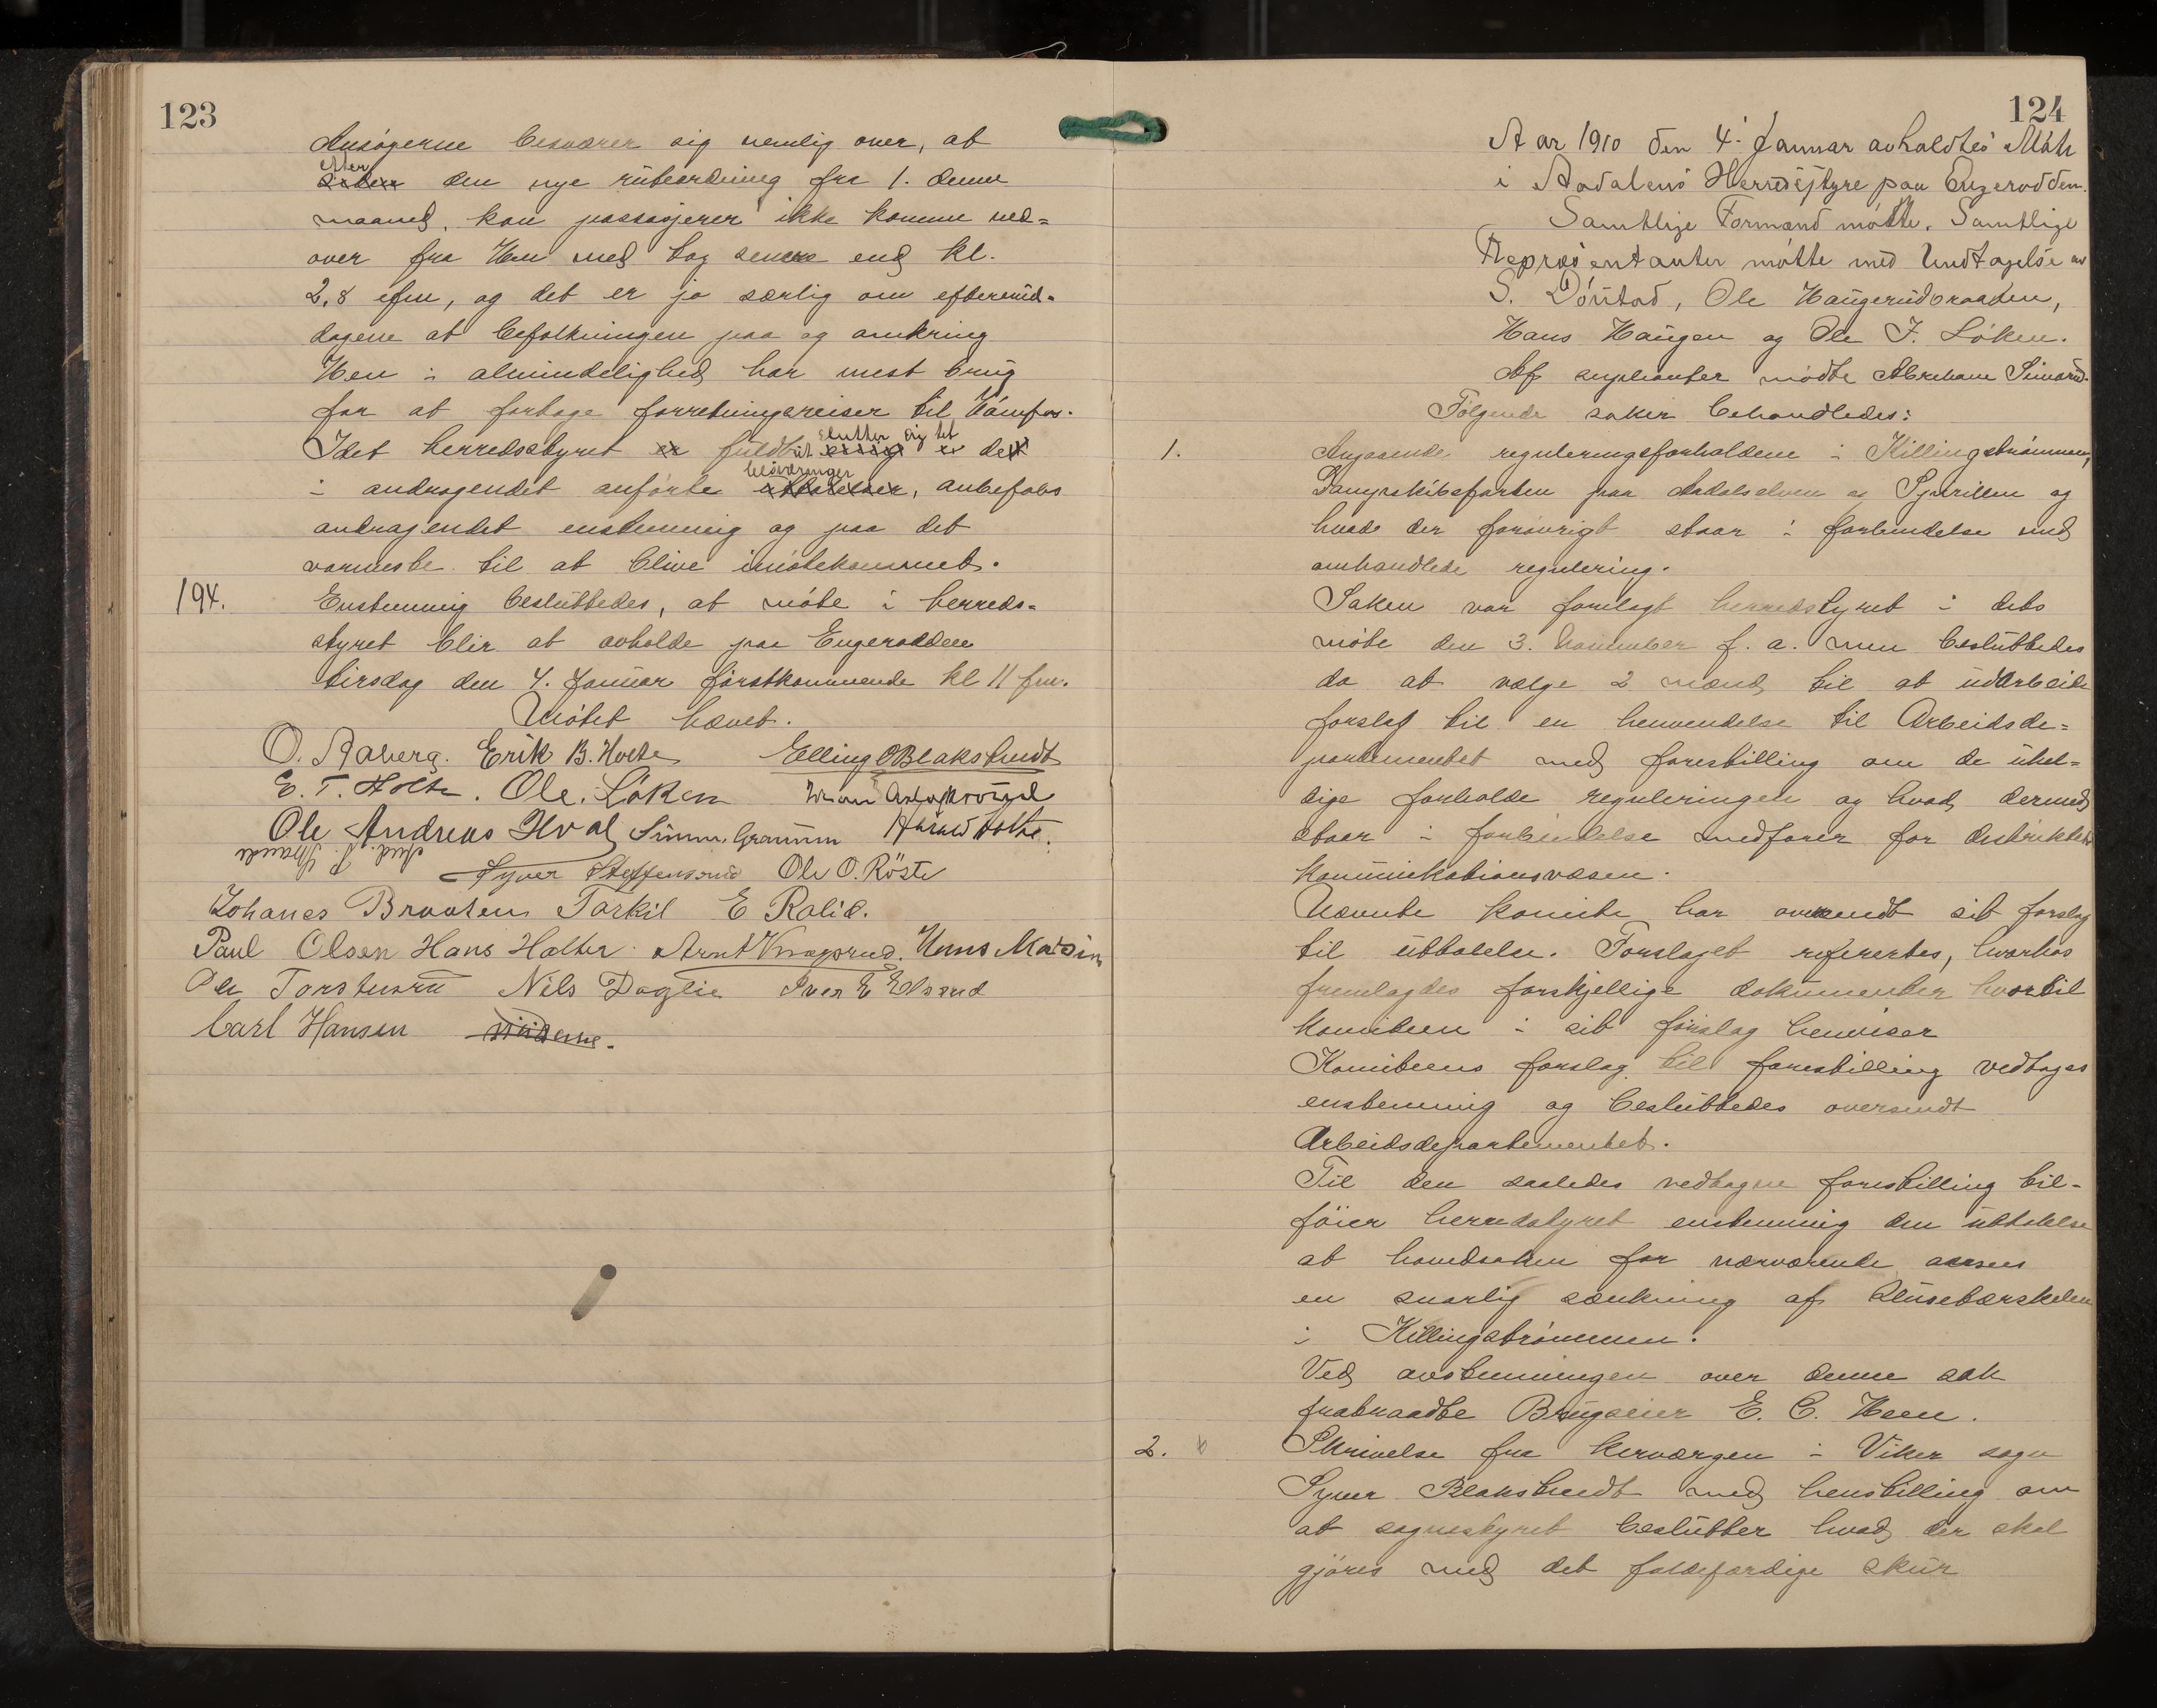 123
Ansøgerne besværer sig nemlig over, at
efter
siden den nye ruteordning fra 1. denne
maaned, kan passasjerer ikke komme ned=
over fra Hen med tog senere end kl.
2,8 efm, og det er jo særlig om eftermid=
dagene at befolkningen paa og omkring
Hen i almindelighed har mest brug
for at foretage forretningsreiser til Hönefos.
slutter sig til
Idet herredsstyret er fuldt ut enig er det
besværinger
i andragendet anførte uttalelser, anbefales
andragendet enstemmig og paa det
varmeste til at blive imøtekommet.
194. Enstemmig besluttedes, at møte i herreds=
styret blir at avholde paa Engerodden
tirsdag den 4. Januar førstkommende kl 11 fm.
Møtet hævet.
O. Aaberg. Erik B. Holte Elling O Blakstvedt
E. T. Holte. Ole. Löken
Ole Andreas Hval Simen Granum Harald Holte.
Syver Steffensrud Ole O. Röste
Johanes Braaten Torkil E Ralie.
Paul Olsen Hans Halter. Arnt Knagsrud. Hans Madsin
Ole Torstensrud Nils Doglie Iver E Elsrud
Carl Hansen
124
Aar 1910 den 4. Januar avholdtes Møte
i Aadalens Herredsstyre paa Engerodden.
Samtlige Formænd møtte. Samtlige
Repræsentanter møtte med Undtagelse av
S. Dönstad, Ole Haugerudbraaten,
Hans Haugen og Ole J. Löken.
Af suplianter mødte Abraham
Følgende saker behandledes:
1. Angaaende reguleringsforholdene i Killingstrømmen,
Dampskibsfarten paa Aadalselven og Sperillen og
hvad der forøvrigt staar i forbindelse med
omhandlede regulering.
Saken var forelagt herredstyret i dets
møte den 3. november f. a. men besluttedes
da at vælge 2 mænd til at utarbeide
forslag til en henvendelse til Arbeidsde=
partementet med forestilling om de uhel=
dige forholde reguleringen og hvad dermed
staar i forbindelse medfører for distriktets
kommunikationsvæsen.
Nævnte komite har oversendt sit forslag
til uttalelse. Forslaget referertes, hvorhos
fremlagdes forskjellige dokumenter hvortil
komiteen i sit forslag henviser
Komiteens forslag til forestilling vedtages
enstemmig og besluttedes oversendt
Arbeidsdepartementet.
Til den saaledes vedtagne forestilling til=
föier herredstyret enstemmig den uttalelse
at hovedsaken for nærværende ansees
en snarlig sænkning af slusetærskelen
i Killingstrømmen.
Ved avstemningen over denne sak
fratraadte Brugseier E. C. Heen.
2. Skrivelse fra kirkeværgen i Viker sogn
Syver Blakstvedt med henstilling om
at sognestyret beslutter hvad der skal
gjøres med det faldefærdige skur